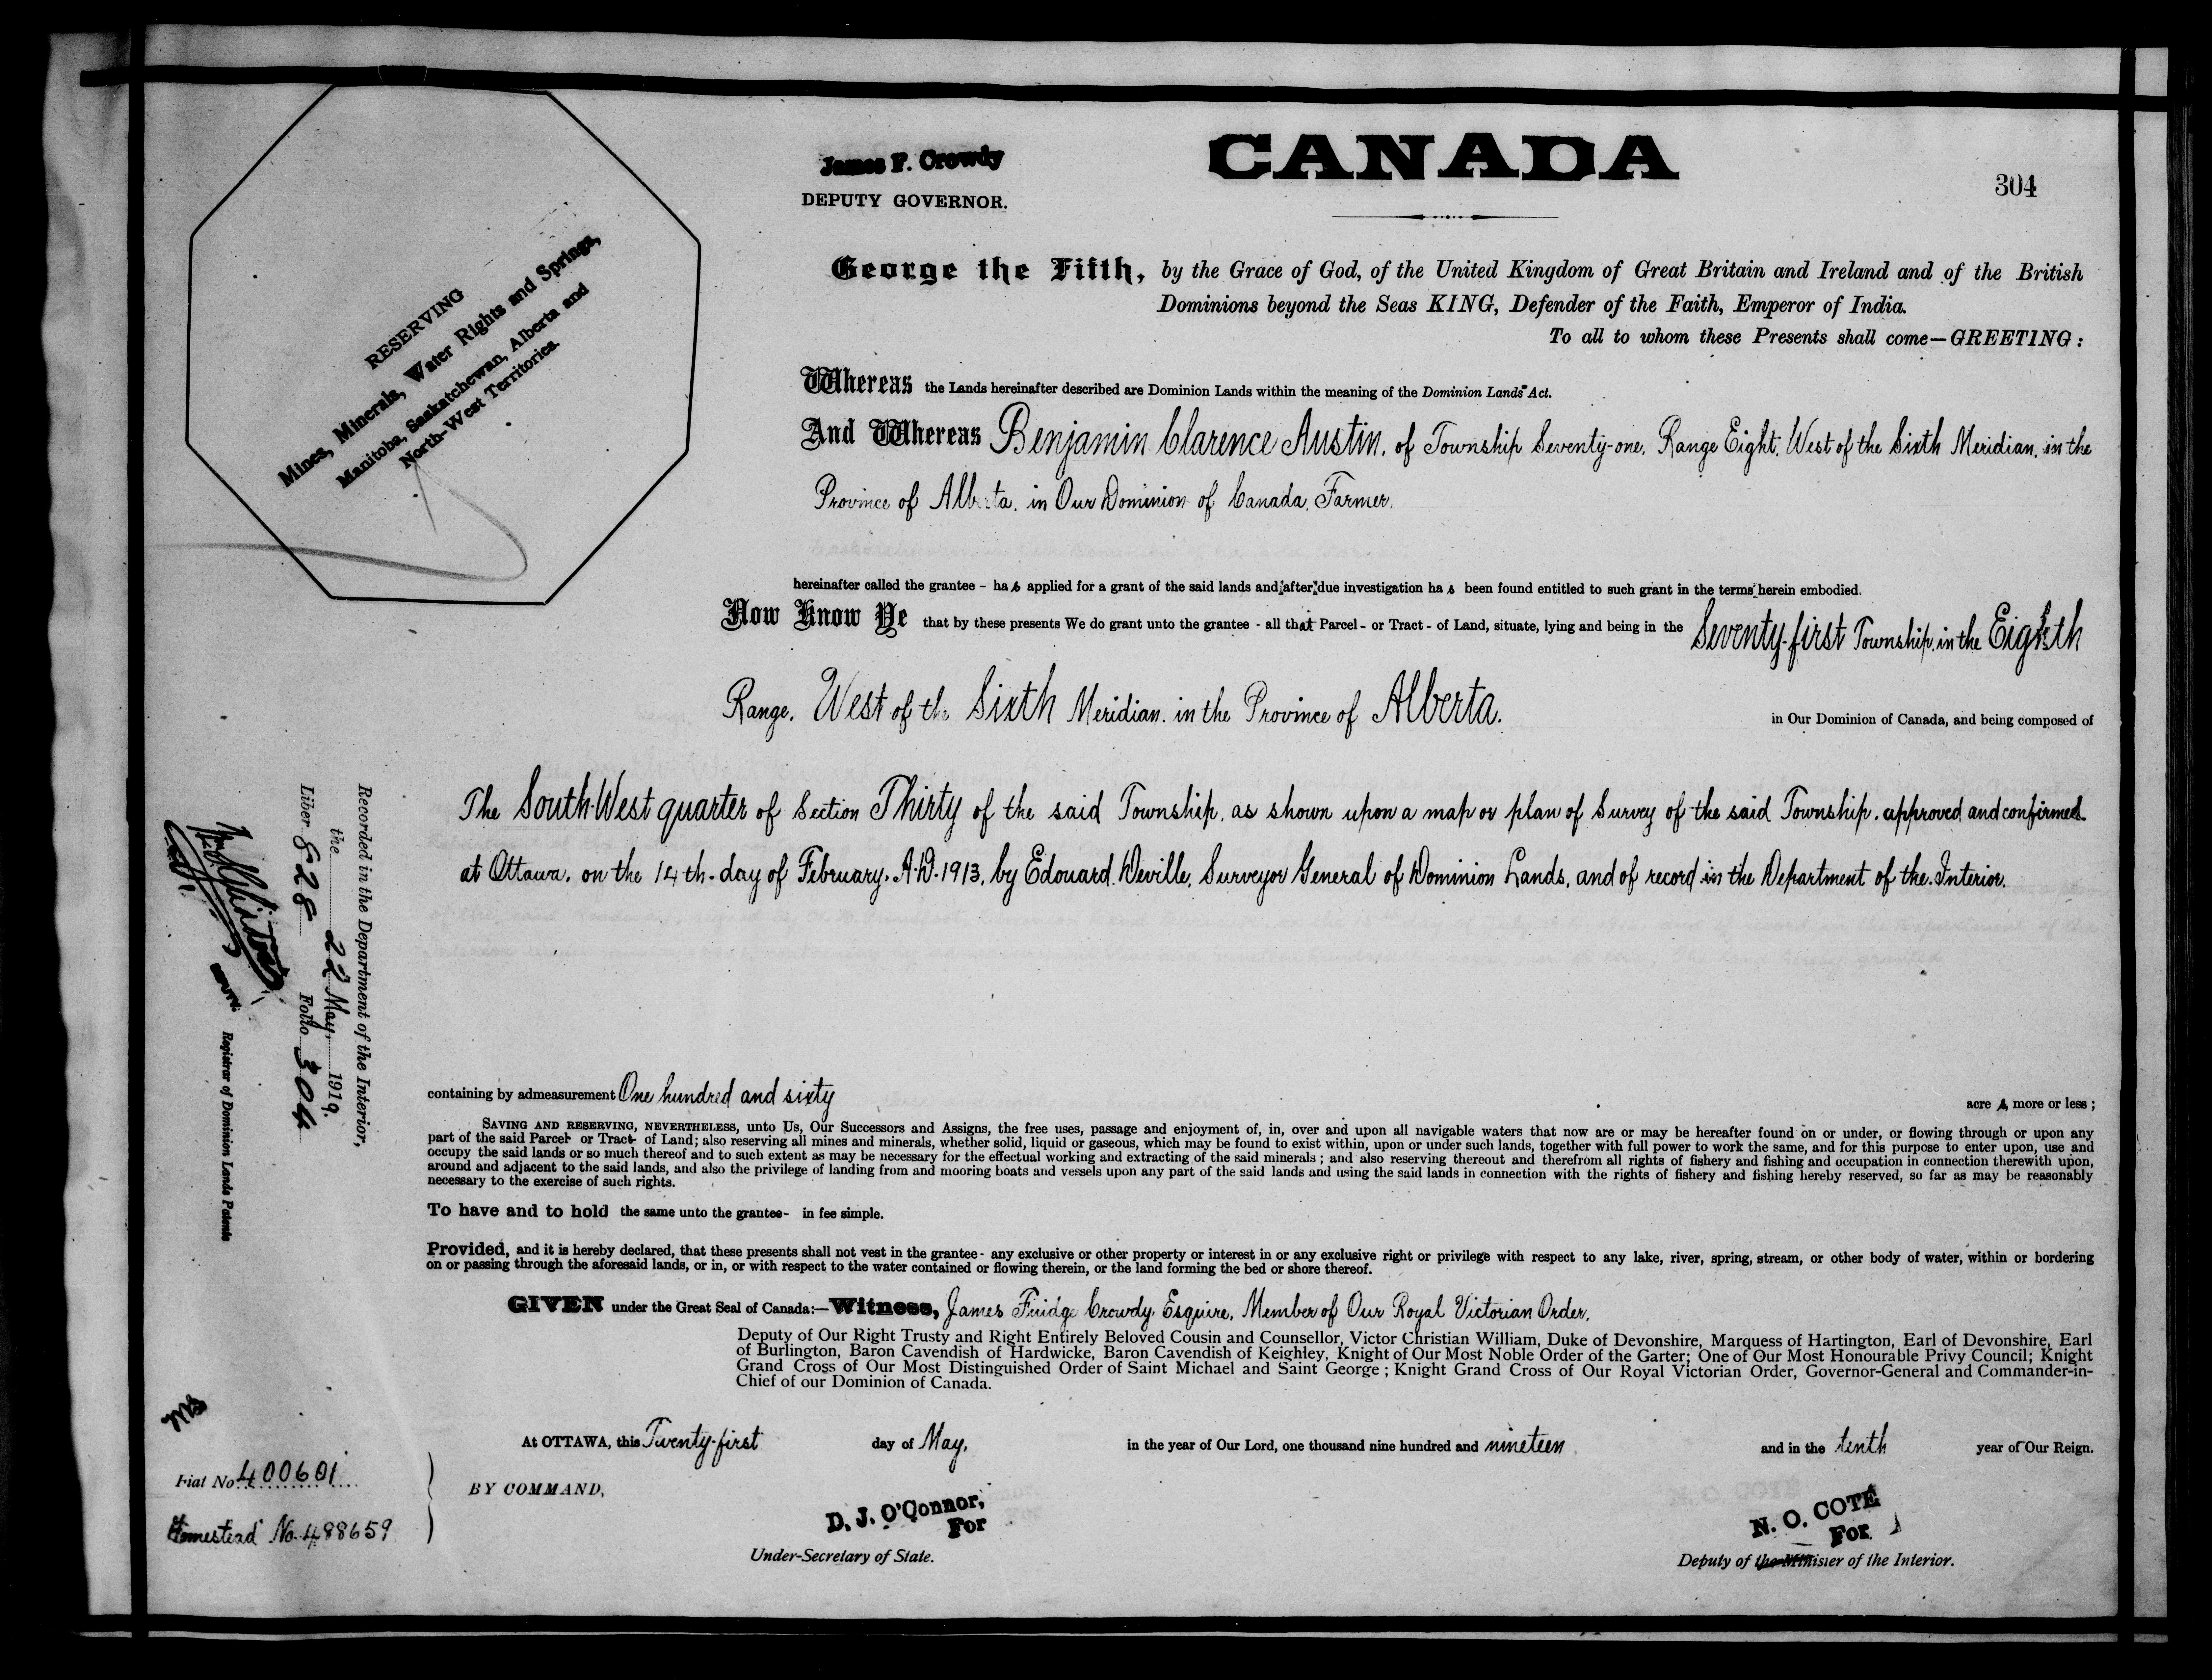 James F. Crowdy
DEPUTY GOVERNOR.
CANADA
304
RESERVING
Mines, Minerals, Water Rights and Springs,
Manitoba, Saskatchewan, Alberta and
North-West Territories.
George the Fifth, by the Grace of God, of the United Kingdom of Great Britain and Ireland and of the British
Dominions beyond the Seas KING, Defender of the Faith, Emperor of India.
To all to whom these Presents shall come—GREETING:
Whereas the Lands hereinafter described are Dominion Lands within the meaning of the Dominion Lands Act.
And Whereas Benjamin Clarence Austin, of Township Seventy-one, Range Eight, West of the Sixth Meridian, in the
Province of Alberta, in Our Dominion of Canada, Farmer,
hereinafter called the grantee - has applied for a grant of the said lands and after due investigation has been found entitled to such grant in the terms herein embodied.
Now Know Ye that by these presents We do grant unto the grantee - all that Parcel - or Tract - of Land, situate, lying and being in the Seventy-first Township, in the Eighth
Range, West of the Sixth Meridian, in the Province of Alberta, in Our Dominion of Canada, and being composed of
The South-West quarter of Section Thirty of the said Township, as shown upon a map or plan of Survey of the said Township, approved and confirmed
at Ottawa, on the 14th day of February, A.D. 1913, by Edouard Deville, Surveyor General of Dominion Lands, and of record in the Department of the Interior.
containing by admeasurement One hundred and sixty acres, more or less;
SAVING AND RESERVING, NEVERTHELESS, unto Us, Our Successors and Assigns, the free uses, passage and enjoyment of, in, over and upon all navigable waters that now are or may be hereafter found on or under, or flowing through or upon any
part of the said Parcel- or Tract- of Land; also reserving all mines and minerals, whether solid, liquid or gaseous, which may be found to exist within, upon or under such lands, together with full power to work the same, and for this purpose to enter upon, use and
occupy the said lands or so much thereof and to such extent as may be necessary for the effectual working and extracting of the said minerals; and also reserving thereout and therefrom all rights of fishery and fishing and occupation in connection therewith upon,
around and adjacent to the said lands, and also the privilege of landing from and mooring boats and vessels upon any part of the said lands and using the said lands in connection with the rights of fishery and fishing hereby reserved, so far as may be reasonably
necessary to the exercise of such rights.
To have and to hold the same unto the grantee- in fee simple.
Provided, and it is hereby declared, that these presents shall not vest in the grantee - any exclusive or other property or interest in or any exclusive right or privilege with respect to any lake, river, spring, stream, or other body of water, within or bordering
on or passing through the aforesaid lands, or in, or with respect to the water contained or flowing therein, or the land forming the bed or shore thereof.
GIVEN under the Great Seal of Canada:—Witness, James Fuidge Crowdy, Esquire, Member of Our Royal Victorian Order,
Deputy of Our Right Trusty and Right Entirely Beloved Cousin and Counsellor, Victor Christian William, Duke of Devonshire, Marquess of Hartington, Earl of Devonshire, Earl
of Burlington, Baron Cavendish of Hardwicke, Baron Cavendish of Keighley, Knight of Our Most Noble Order of the Garter; One of Our Most Honourable Privy Council; Knight
Grand Cross of Our Most Distinguished Order of Saint Michael and Saint George; Knight Grand Cross of Our Royal Victorian Order, Governor-General and Commander-in-
Chief of our Dominion of Canada.
At OTTAWA, this Twenty-first day of May, in the year of Our Lord, one thousand nine hundred and nineteen and in the tenth year of Our Reign.
BY COMMAND,
D. J. O'Connor,
For
Under-Secretary of State.
N. O. COTÉ
For
Deputy of the Minister of the Interior.
Recorded in the Department of the Interior,
the 22 May, 1919.
Liber 828 Folio 304
DEPUTY Registrar of Dominion Lands Patents
Fiat No. 400601
Homestead No. 488659